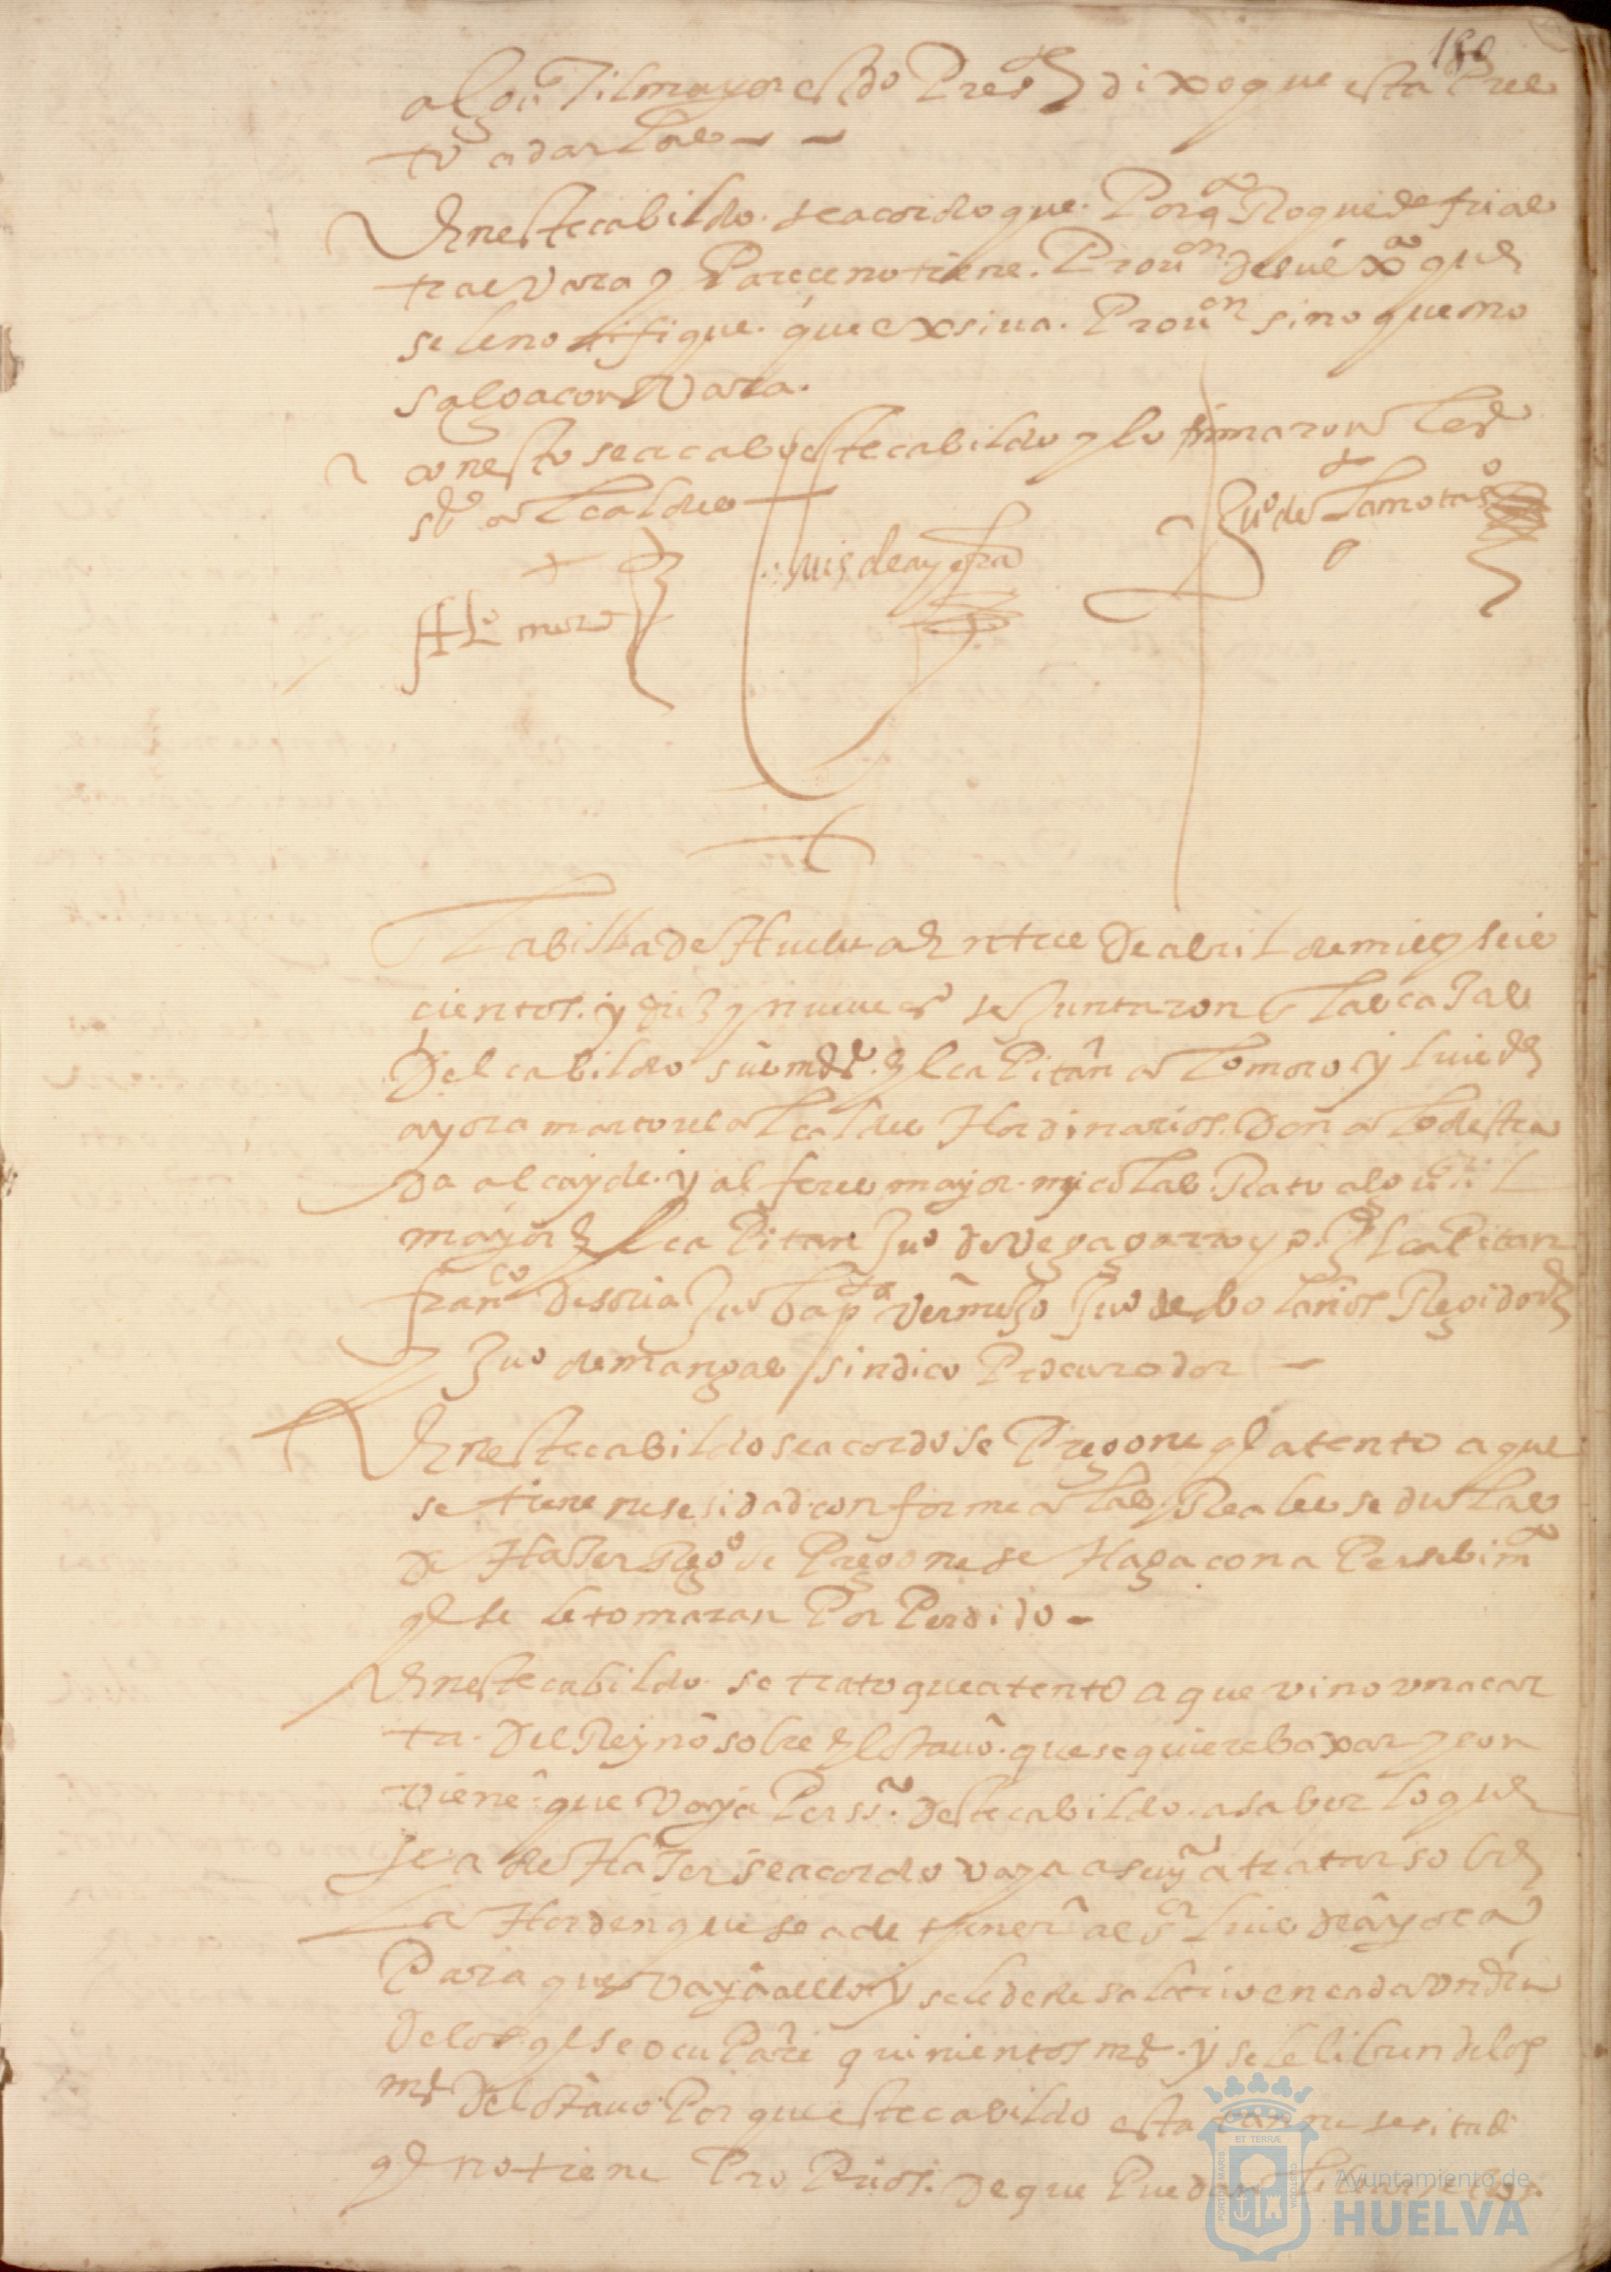 algua Zilmayor esTdo Press dixo que esta Pres
to a darlas
En este cabildo se acordo que Porq Roque de frias
trae Vara y Parece no tiene Prouon de su exa que
se le notifique que exsiua Prouon sino que no
salga con Vara
con esto se acabo este cabildo y lo firmaron los
alcaldes
Juo de Lamota
luis de ayora
Alo moro
En la billa de Huelua En trece De abril de mil y seis
cientos y diez y nueue as se Juntaron En las casas
Del cabildo sus mds El ca Pitan alo moro y luis de
ayora martorel alcaldes Hordinarios Don alo de estra
da alcayde y alferes mayor nicolas Rato algua Zil
mayor El ca Pitan Juo de Vega garrocho El ca Pitan
franco De soria Juo bapta Vermejo Juo de bolaños Regidores
Juo de mangas sindico Procurador
En este cabildo se acordo se Pregone q atento a que
se tiene nesesidad conforme a las Reales sedulas
De HaZer Rego se Pregone se Haga con a Persebimo
q se le tomaran Por Perdido
En este cabildo se trato que atento a que vino vna car
ta Del Reyno sobre El otauo que se quiere baxar y con
viene que Vaya Perssa Deste cabildo a saber lo que
se a de HaZer se acordo vaya a seuya a tratar sobre
La Horden que se a de tener al sr luis de ayora
Para que Vaya a ello y se le de de salario en cada vn dia
De los q se ocu Pare quinientos ms y se le libren de los
ms Del otauo Por que este cabildo esta tan nesesitado
q no tiene Pro Prios De que Puedan librarselos
Ayuntamiento de
HUELVA